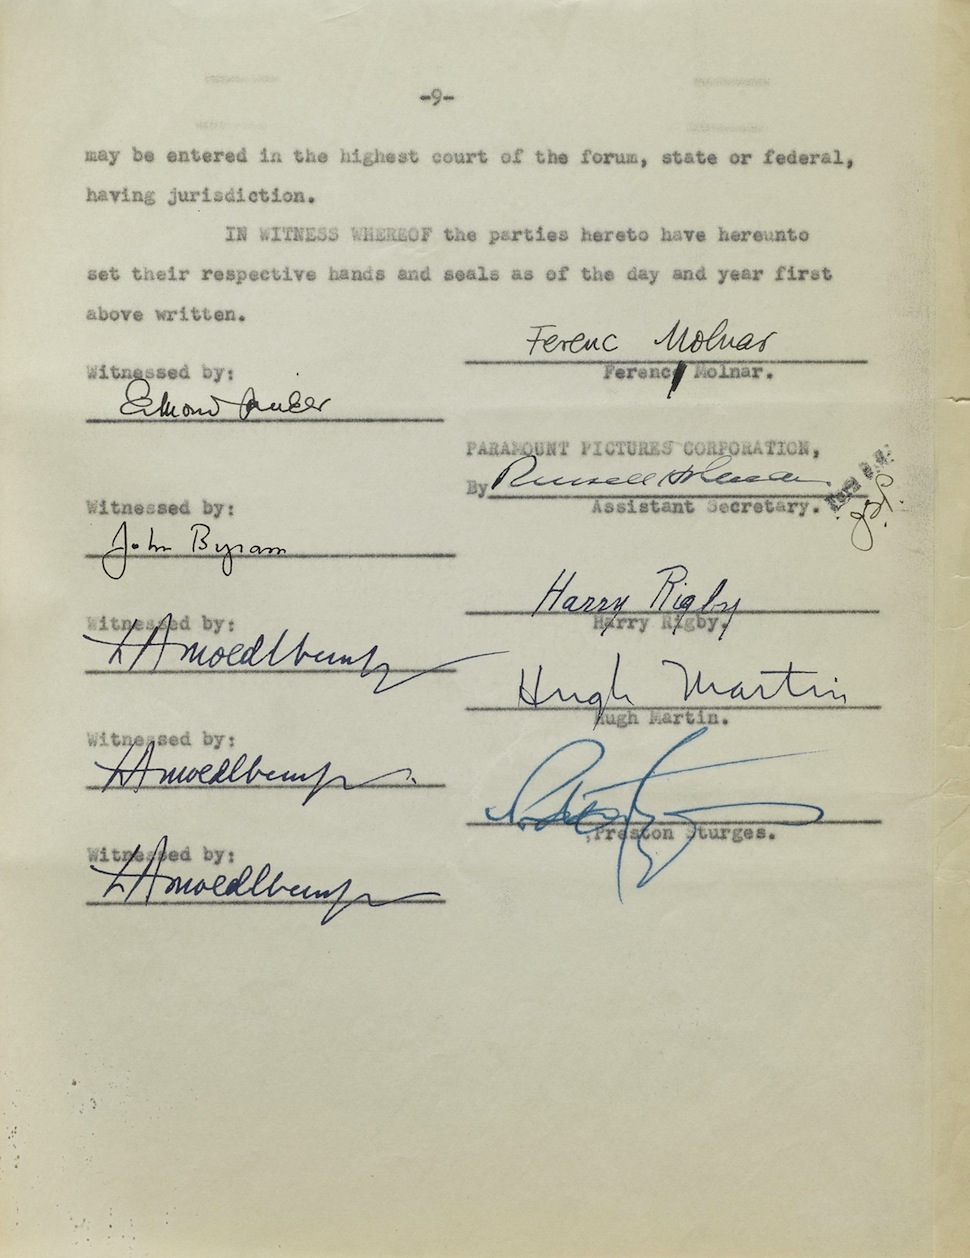 -9-
may be entered in the highest court of the forum, state or federal,
having jurisdiction.
IN WITNESS WHEREOF the parties hereto have hereunto
set their respective hands and seals as of the day and year first
above written.
Ferenc Molnar
Witnessed by:
Ferenc Molnar.
Edmond
PARAMOUNT PICTURES CORPORATION,
By Russell Holman
Witnessed by:
Assistant Secretary.
John Byram
Harry Rigby
Witnessed by:
Harry Rigby.
Hugh Martin
Hugh Martin.
Witnessed by:
Preston Sturges.
Witnessed by: